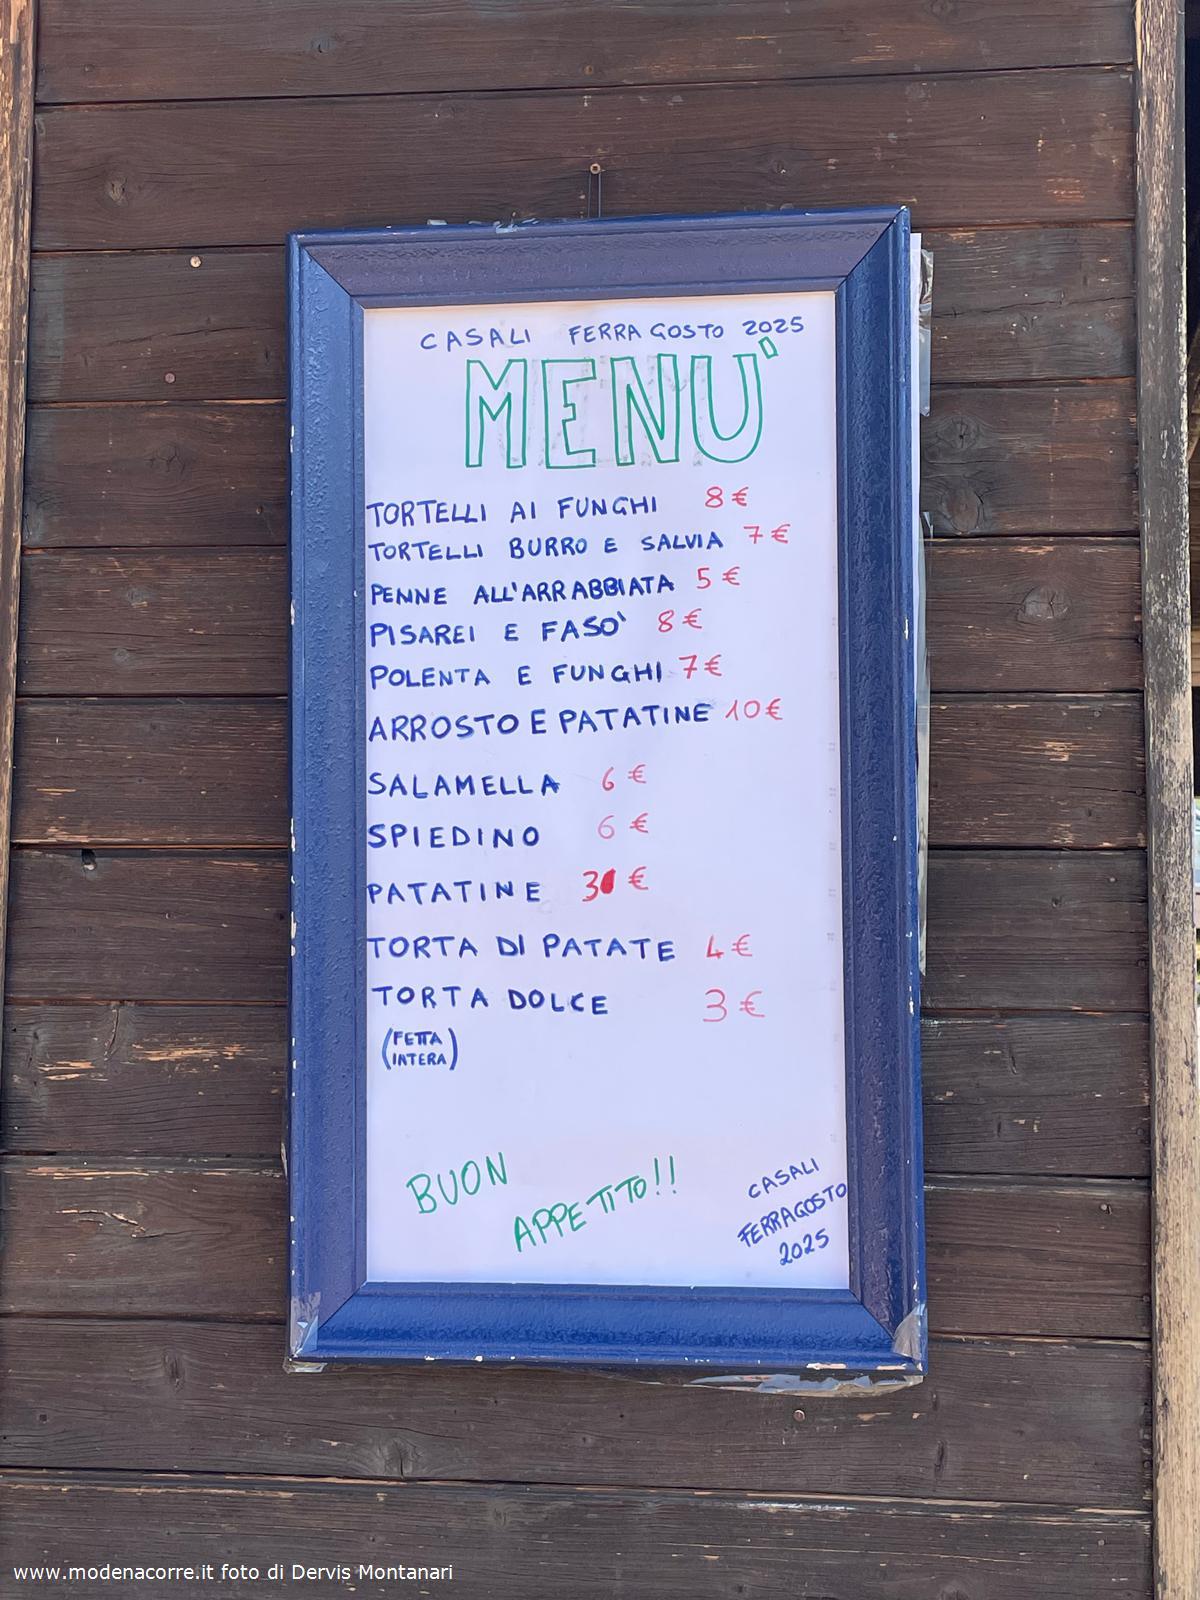 CASALI FERRAGOSTO 2025
MENU'
TORTELLI AI FUNGHI 8 €
TORTELLI BURRO E SALVIA 7 €
PENNE ALL'ARRABBIATA 5 €
PISAREI E FASO' 8 €
POLENTA E FUNGHI 7 €
ARROSTO E PATATINE 10 €
SALAMELLA 6 €
SPIEDINO 6 €
PATATINE 3 €
TORTA DI PATATE 4 €
TORTA DOLCE 3 €
(FETTA
INTERA)
BUON
APPETITO!!
CASALI
FERRAGOSTO
2025
www.modenacorre.it foto di Dervis Montanari